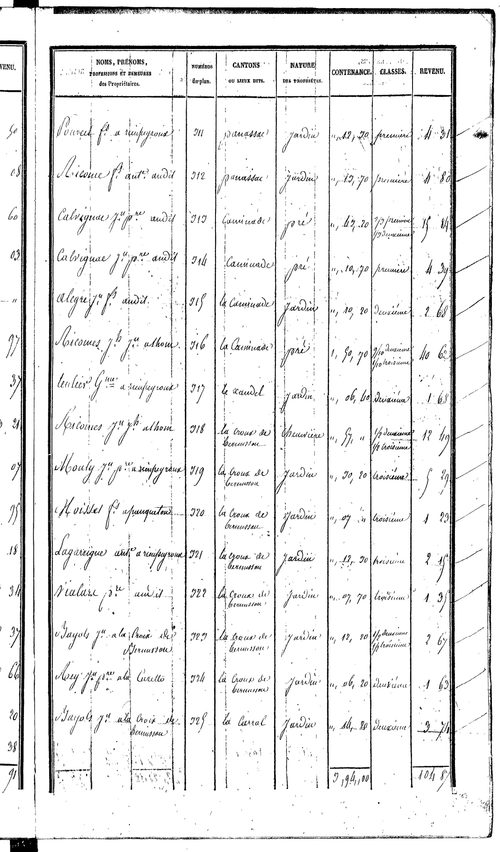 VENU.
NOMS, PRÉNOMS, PROFESSIONS ET DEMEURES des Propriétaires. NUMÉROS du plan. CANTONS OU LIEUX DITS. NATURE DES PROPRIÉTÉS. CONTENANCE. CLASSES. REVENU.
50 f.s a rimpeyroux 311 panassac jardin ", 12, 30 première 4 31
08 Ricome f.s ant.ne audit 312 panassac jardin ", 13, 70 première 4 80
60 Calvignac j.n p.re audit 313 Caminade pré ", 43, 20 première deuxième 15 84
03 Calvignac j.n p.re audit 314 Caminade pré ", 10, 70 première 4 39
" alegre j.n f.s audit 315 la Caminade jardin ", 10, 20 deuxième 2 68
97 Ricomes j.ph j.n 316 la Caminade pré 1, 50, 70 deuxième troisième 40 62
37 a rimpeyroux 317 jardin ", 06, 40 deuxième 1 68
21 Ricomes j.n j.ph 318 la croux de bermusson chenevière ", 57, " deuxième troisième 12 49
07 Mouly j.n p.re a rimpeyroux 319 la Croux de bermusson jardin ", 30, 20 troisième 5 29
95 Moisset f.s 320 la Croux de bermusson jardin ", 07 " troisième 1 23
18 Lagarrigue ant.e a rimpeyroux 321 la croux de bermusson jardin ", 12, 30 troisième 2 15
34 p.re audit 322 la Croux de bermusson jardin ", 07, 70 troisième 1 35
37 Bayols j.n a la Croix de Bermusson 323 la croux de bermusson jardin ", 12, 20 deuxième troisième 2 67
66 Rey j.n p.re a la 324 la Croux de bermusson jardin ", 06, 20 deuxième 1 63
20 Bayols j.n a la Croix de bermusson 325 la Carral jardin ", 14, 20 deuxième 3 74
38
91 3, 94, 00 104 87